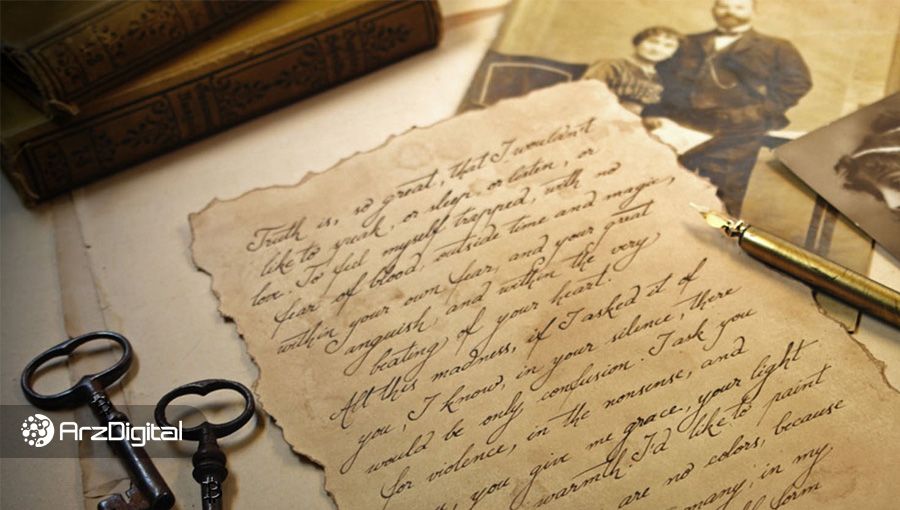 Truth is, so great, that I wouldn't
like to speak, or sleep, or listen, or
love. To feel myself trapped, with no
fear of blood, outside time and magic,
within your own fear, and your great
anguish, and within the very
beating of your heart.
All this madness, if I asked it of
you, I know, in your silence, there
would be only confusion. I ask you
for violence, in the nonsense, and
you give me grace, your light
warmth. I'd like to paint
are no colors, because
many, in my
form
ArzDigital